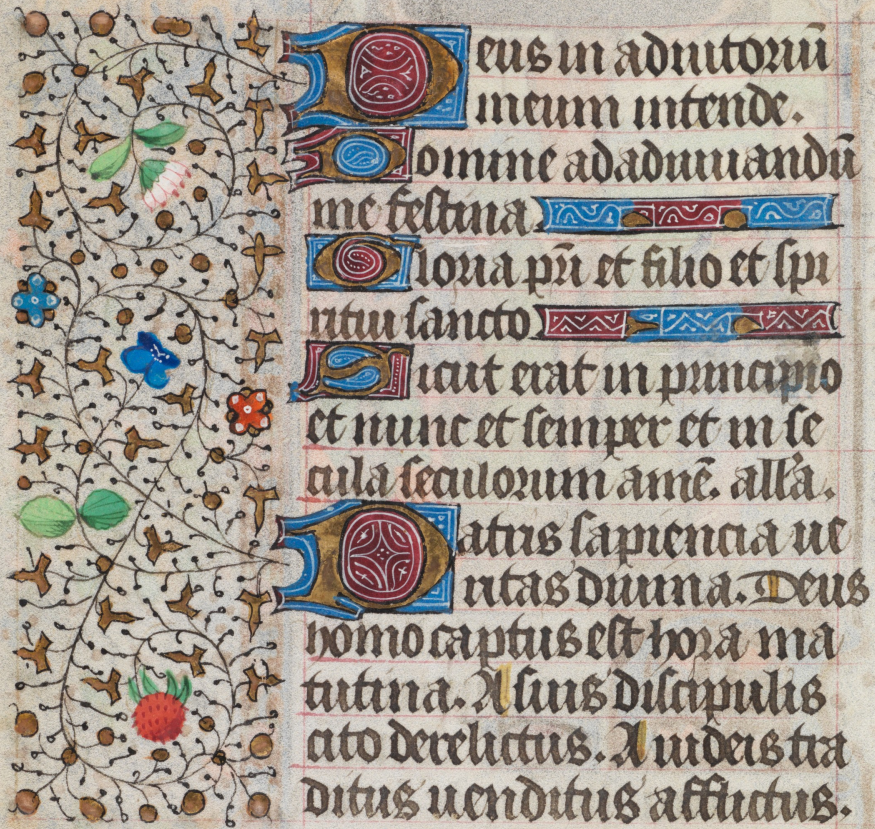 Deus in adiutoriū
meum intende.
Domine ad adiuuandū
me festina
Gloria pr̄i et filio et spi
ritui sancto
Sicut erat in principio
et nunc et semper et in se
cula seculorum amē. all'a.
Patris sapiencia ue
ritas diuina. Deus
homo captus est hora ma
tutina. A suis discipulis
cito derelictus. A iudeis tra
ditus uenditus afflictus.